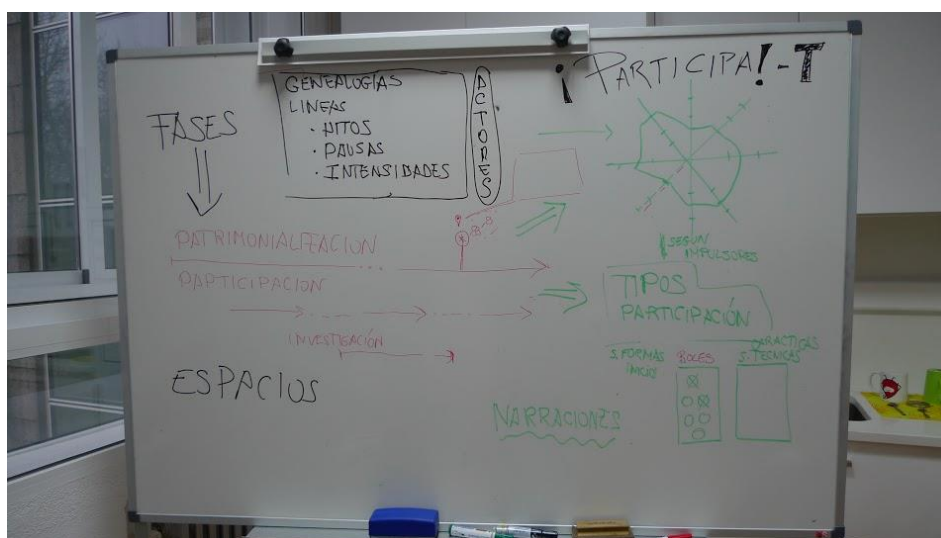 ¡PARTICIPA!-T
GENEALOGÍAS
LINEAS
· HITOS
· PAUSAS
· INTENSIDADES
ACTORES
FASES
PATRIMONIALIZACION
PARTICIPACION
INVESTIGACIÓN
ESPACIOS
SEGUN
IMPULSORES
TIPOS
PARTICIPACIÓN
S. FORMAS
INICIO
ROLES
S. TECNICAS
NARRACIONES